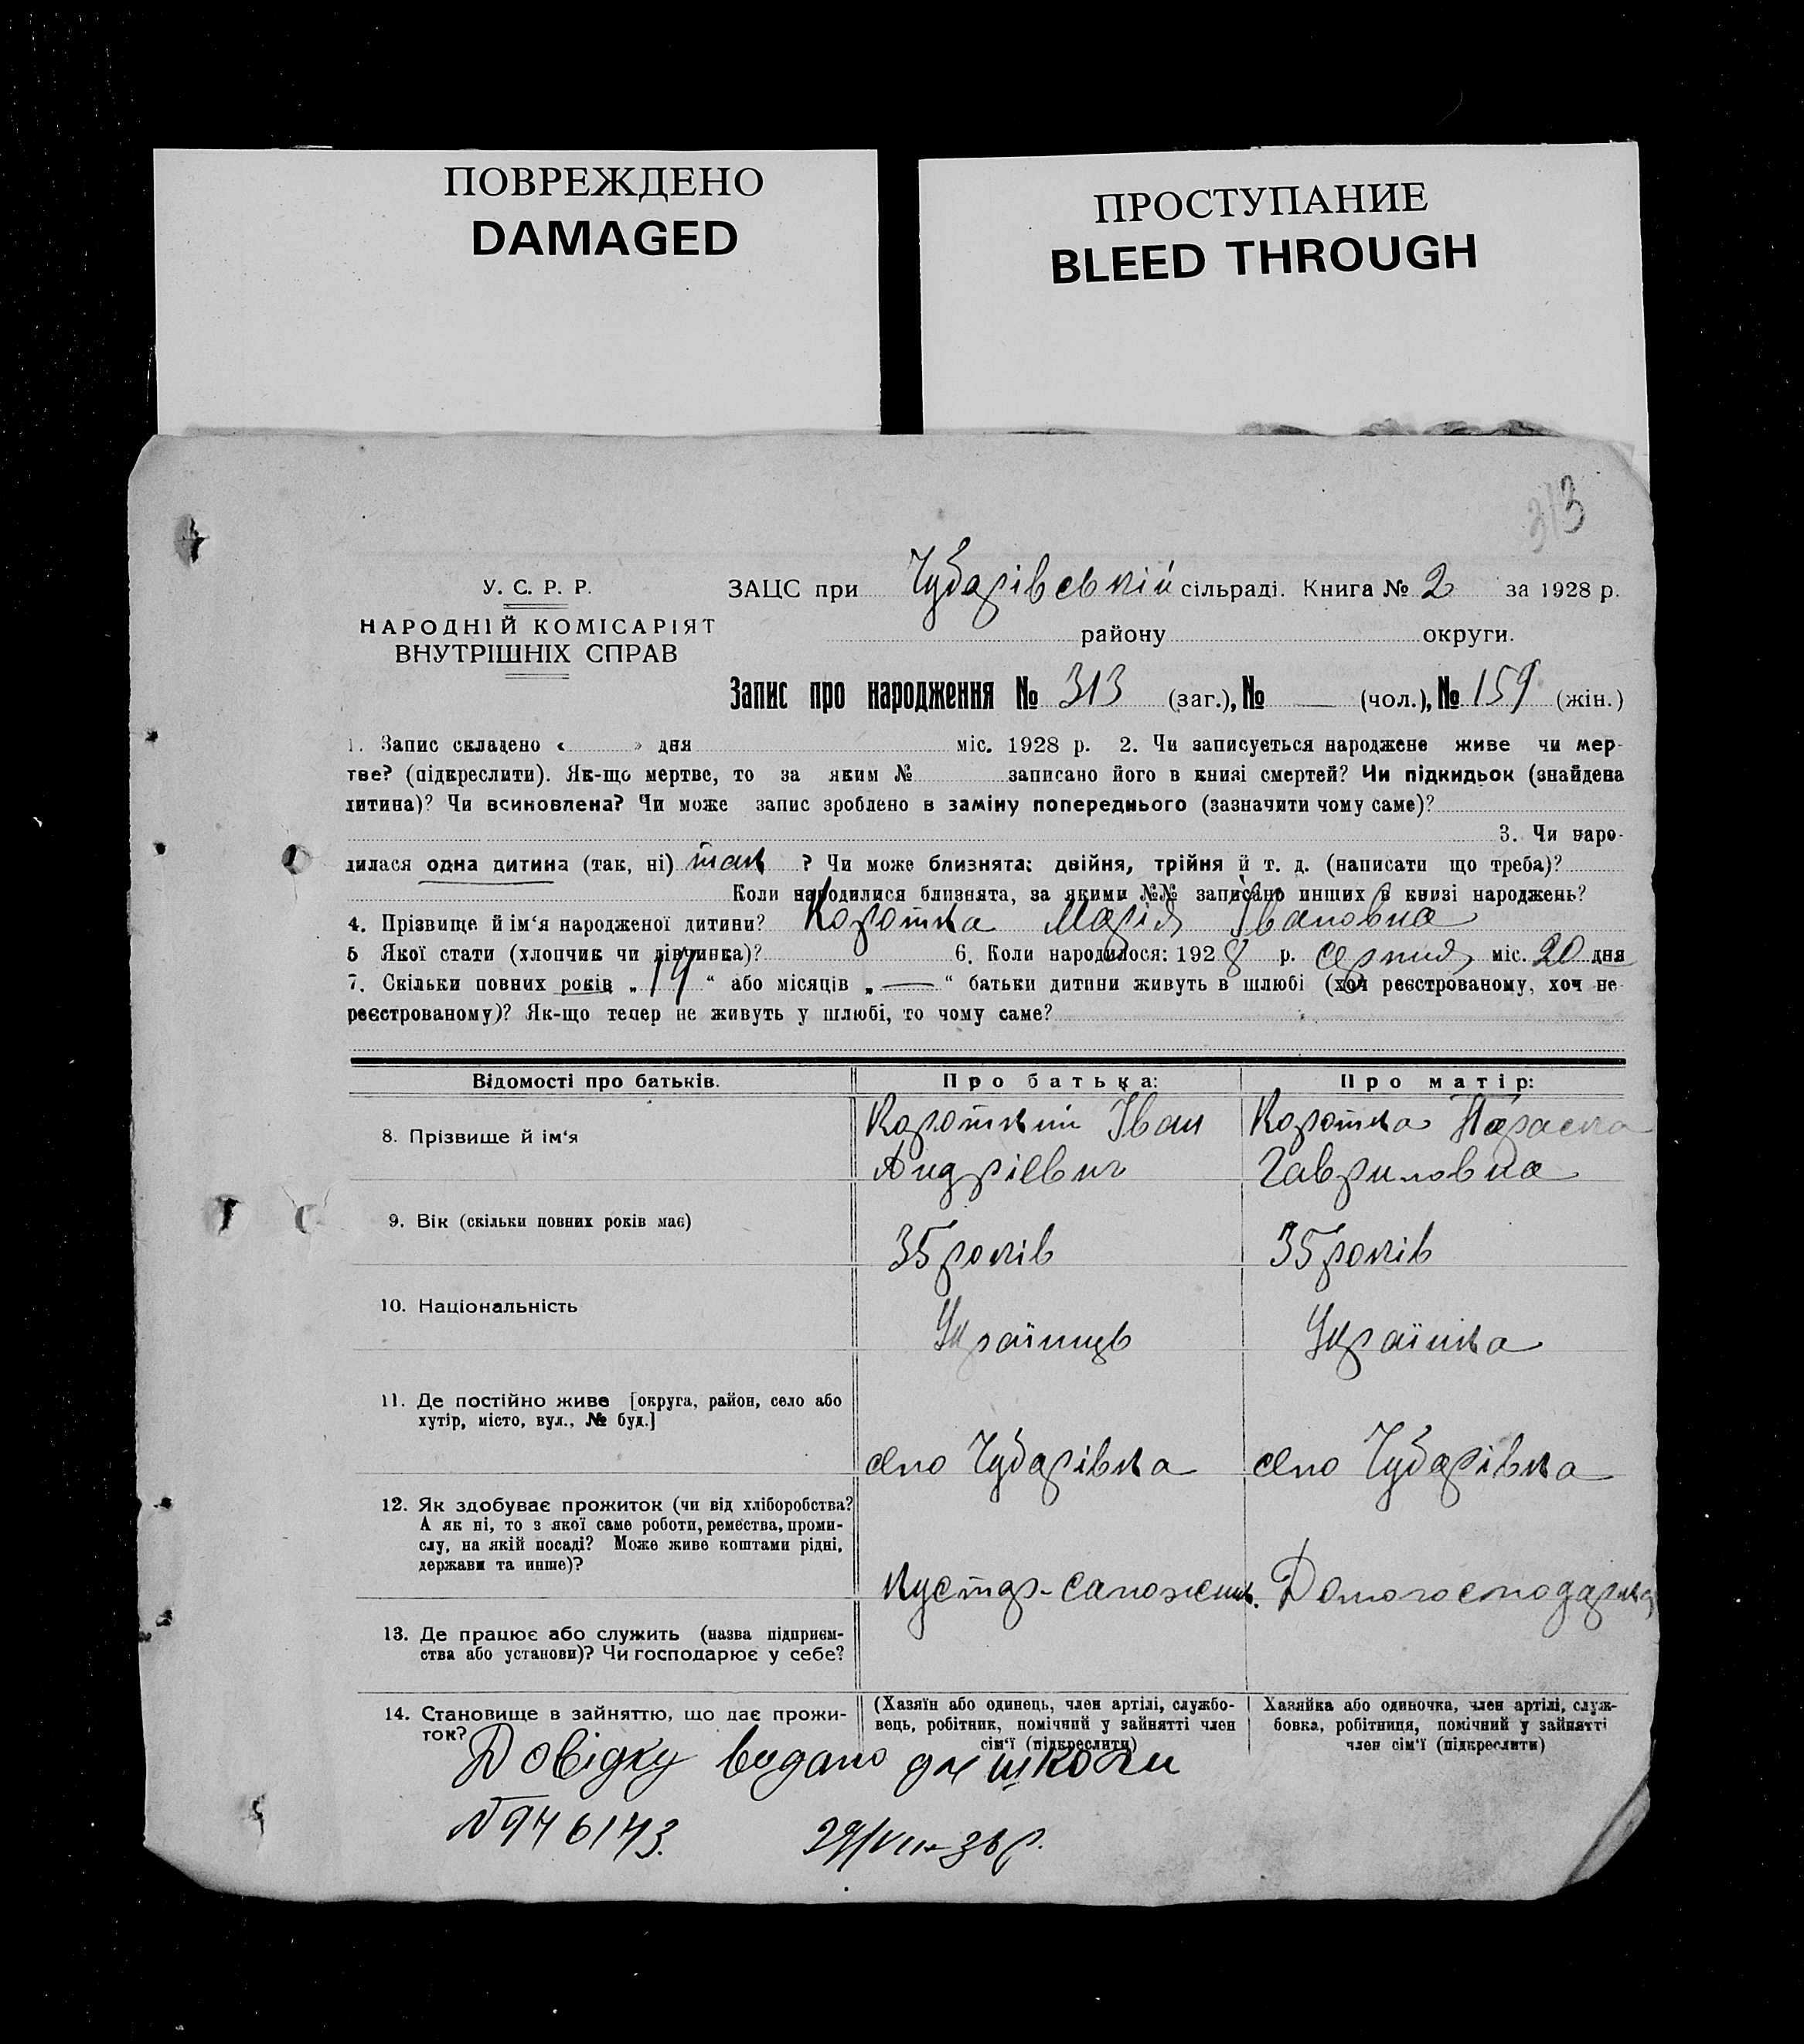 ПОВРЕЖДЕНО
DAMAGED
ПРОСТУПАНИЕ
BLEED THROUGH
313
У. С. Р. Р.
НАРОДНІЙ КОМІСАРІЯТ
ВНУТРІШНІХ СПРАВ
ЗАЦС при Чубарівській сільраді. Книга № 2 за 1928 р.
району округи.
Запис про народження № 313 (заг.), № — (чол.), № 159 (жін.)
1. Запис складено « » дня міс. 1928 р. 2. Чи записується народжене живе чи мер-
тве? (підкреслити). Як-що мертве, то за яким № записано його в книзі смертей? Чи підкидьок (знайдена
дитина)? Чи всиновлена? Чи може запис зроблено в заміну попереднього (зазначити чому саме)?
3. Чи наро-
дилася одна дитина (так, ні) так ? Чи може близнята: двійня, трійня й т. д. (написати що треба)?
Коли народилися близнята, за якими №№ записано инших в книзі народжень?
4. Прізвище й ім‘я народженої дитини? Коротка Марія Івановна
5 Якої стати (хлопчик чи дівчинка)? 6. Коли народилося: 1928 р. серпня міс. 20 дня
7. Скільки повних років „ 14 “ або місяців „ — “ батьки дитини живуть в шлюбі (хоч реєстрованому, хоч не
реєстрованому)? Як-що тепер не живуть у шлюбі, то чому саме?
Відомості про батьків. Про батька: Про матір:
8. Прізвище й ім‘я Короткий Іван Коротка Параска
Андрієвич Гавриловна
9. Вік (скільки повних років має) 35 років 35 років
10. Національність Українець Українка
11. Де постійно живе [округа, район, село або
хутір, місто, вул., № буд.]
село Чубарівка село Чубарівка
12. Як здобуває прожиток (чи від хліборобства?
А як ні, то з якої саме роботи, ремества, проми-
слу, на якій посаді? Може живе коштами рідні,
держави та инше)?
Кустар-сапожник. Домогосподарка
13. Де працює або служить (назва підприєм-
ства або установи)? Чи господарює у себе?
14. Становище в зайняттю, що дає прожи-
ток?
(Хазяїн або одинець, член артілі, службо-
вець, робітник, помічний у зайнятті член
сім‘ї (підкреслити)
Хазяйка або одиночка, член артілі, служ-
бовка, робітниця, помічний у зайнятті
член сім‘ї (підкреслити)
Довідку видано для школи
№ 946143. 29/VII-36р.